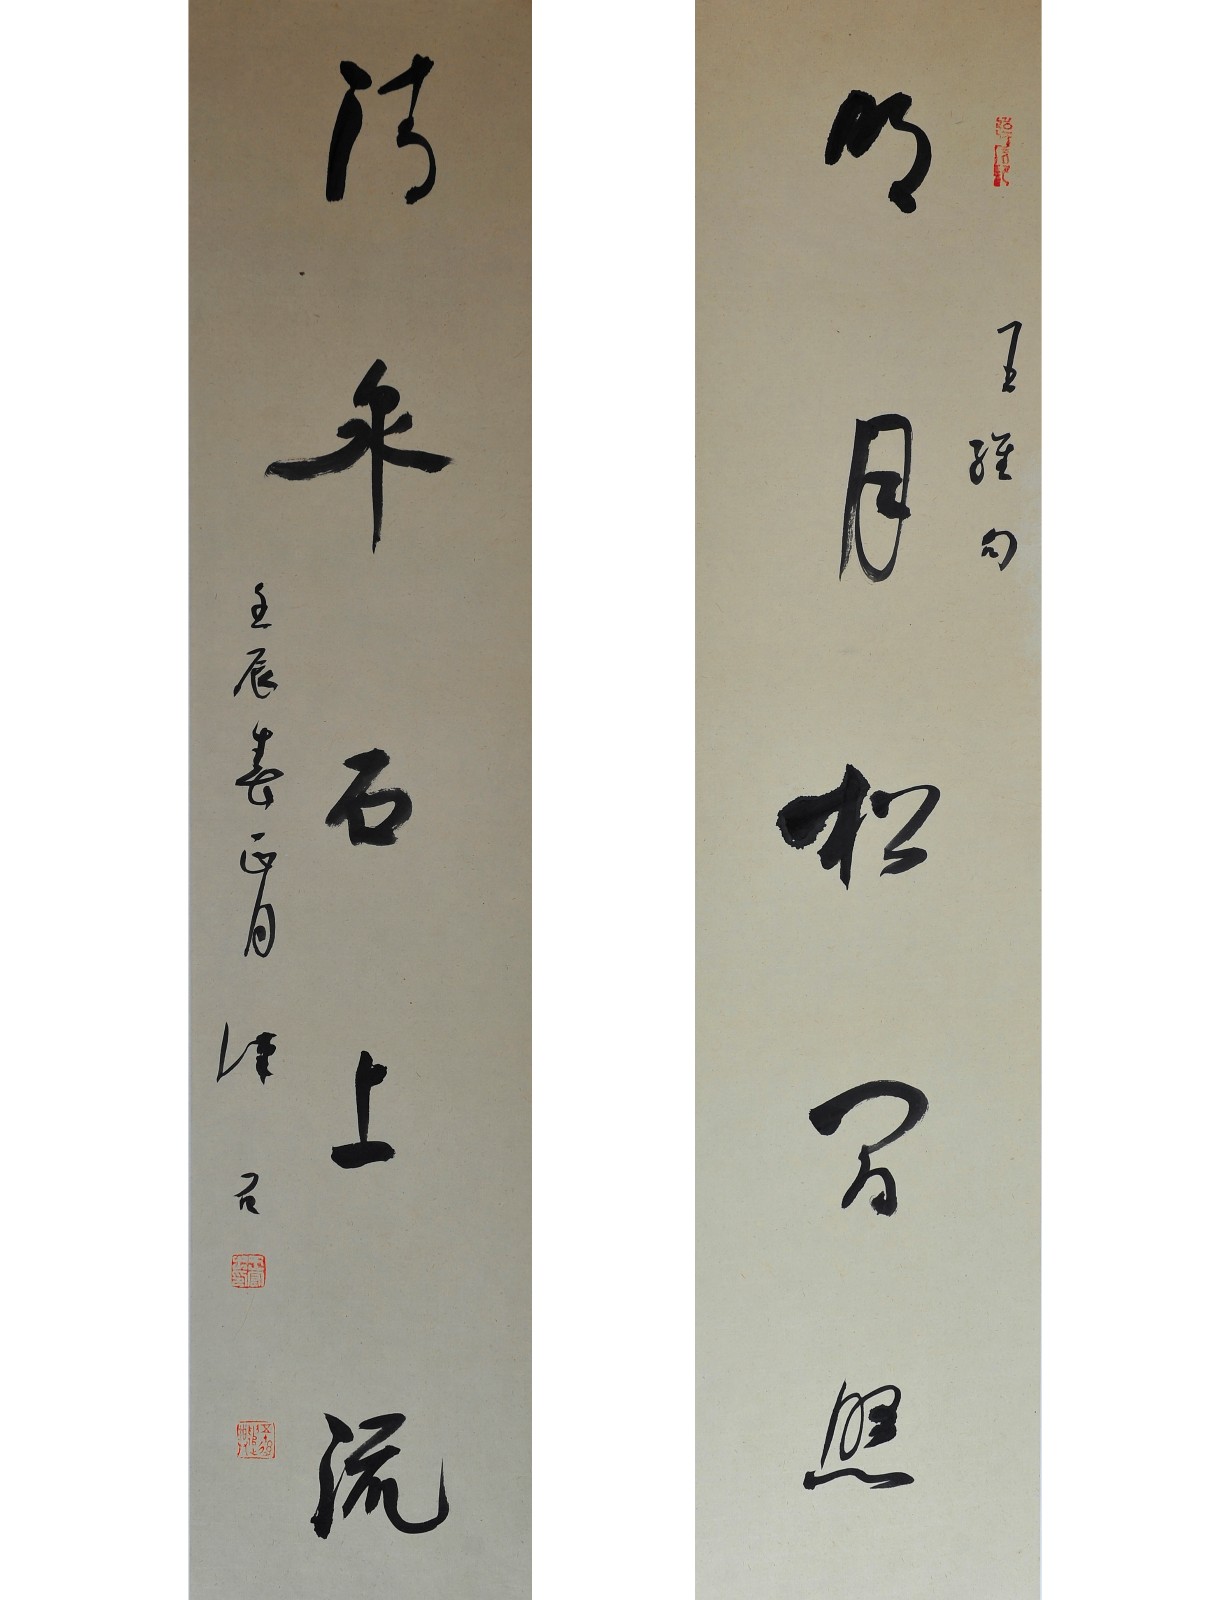 王維句
明月松間照
清泉石上流
壬辰春正月